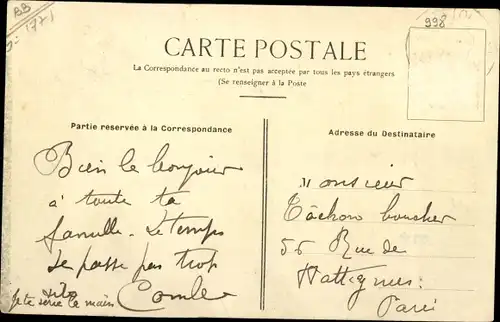 BB
1771
998
CARTE POSTALE
La Correspondance au recto n'est pas acceptée par tous les pays étrangers
(Se renseigner à la Poste
Partie réservée à la Correspondance
Adresse du Destinataire
Bien le bonjour
à toute ta
famille - Le temps
se passe pas trop
vite
Je te serre la main
Monsieur
boucher
56 Rue de
Paris